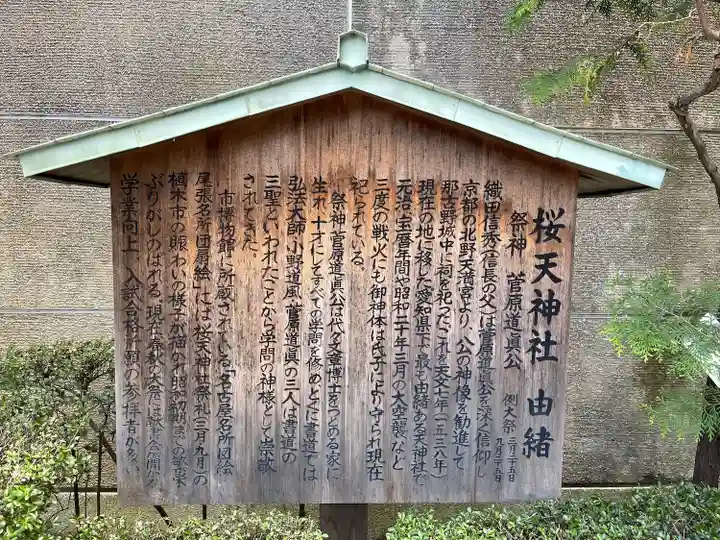 桜天神社 由緒
祭神 菅原道眞公 例大祭 三月二十五日 九月二十五日
織田信秀(信長の父)は菅原道眞公を深く信仰し
京都の北野天満宮より、公の神像を勧進して
那古野城中に祠を祀った。これを天文七年(一五三八年)
現在の地に移した愛知県下最も由緒ある天神社で
元治、宝暦年間や昭和二十年三月の大空襲など
三度の戦火にも御神体は氏子により守られ現在
祀られている。
祭神、菅原道眞公は代々文章博士をつとめる家に
生れ、十才にてすべての学問を修め、とくに書道では
弘法大師、小野道風、菅原道眞の三人は書道の
三聖といわれたことから学問の神様として崇敬
されてきた。
市博物館に所蔵されている「名古屋名所団絵
尾張名所団扇絵」には、桜天神社祭礼(三月、九月)の
植木市の賑わいの様子が描かれ昭和初期までの
ぶりがしのばれる。現在春秋の大祭には
学業向上、入試合格祈願の参拝者が多い